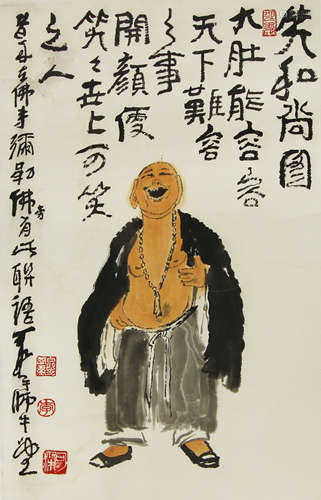 笑和尚图
大肚能容容
天下難容
之事
開顏便
笑笑世上可笑
之人
佛寺彌勒佛旁有此聯語可染師牛堂